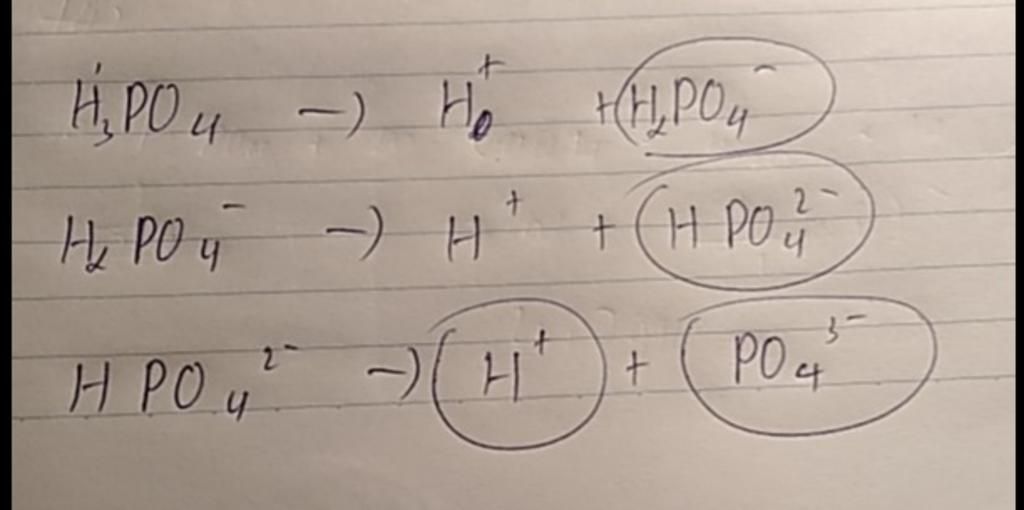 H₃PO₄ → H⁺ + H₂PO₄⁻
H₂PO₄⁻ → H⁺ + HPO₄²⁻
HPO₄²⁻ → H⁺ + PO₄³⁻